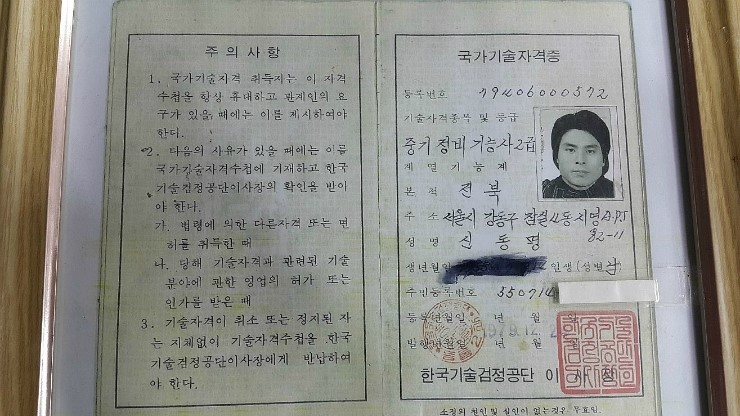 주의사항
1. 국가기술자격 취득자는 이 자격
수첩을 항상 휴대하고 관계인의 요
구가 있을 때에는 이를 제시하여야
한다.
2. 다음의 사유가 있을 때에는 이름
국가기술자격수첩에 기재하고 한국
기술검정공단이사장의 확인을 받아
야 한다.
가. 법령에 의한 다른자격 또는 면
허를 취득한 때
나. 당해 기술자격과 관련된 기술
분야에 관한 영업의 허가 또는
인가를 받은 때
3. 기술자격이 취소 또는 정지된 자
는 지체없이 기술자격수첩을 한국
기술검정공단이사장에게 반납하여
야 한다.
국가기술자격증
등록번호 79406000572
기술자격종목 및 등급
중기정비기능사2급
계열 기능계
본적 전북
주소 서울시 강동구 잠실4동 시영A.P.T
82-11
성명 신동평
생년월일 일생 (성별 남)
주민등록번호 550714
등록년월일 년 월
1979.12.2
발행년월일 년 월
한국기술검정공단 이사장
소정의 철인 및 실인이 없는것은 무효임.